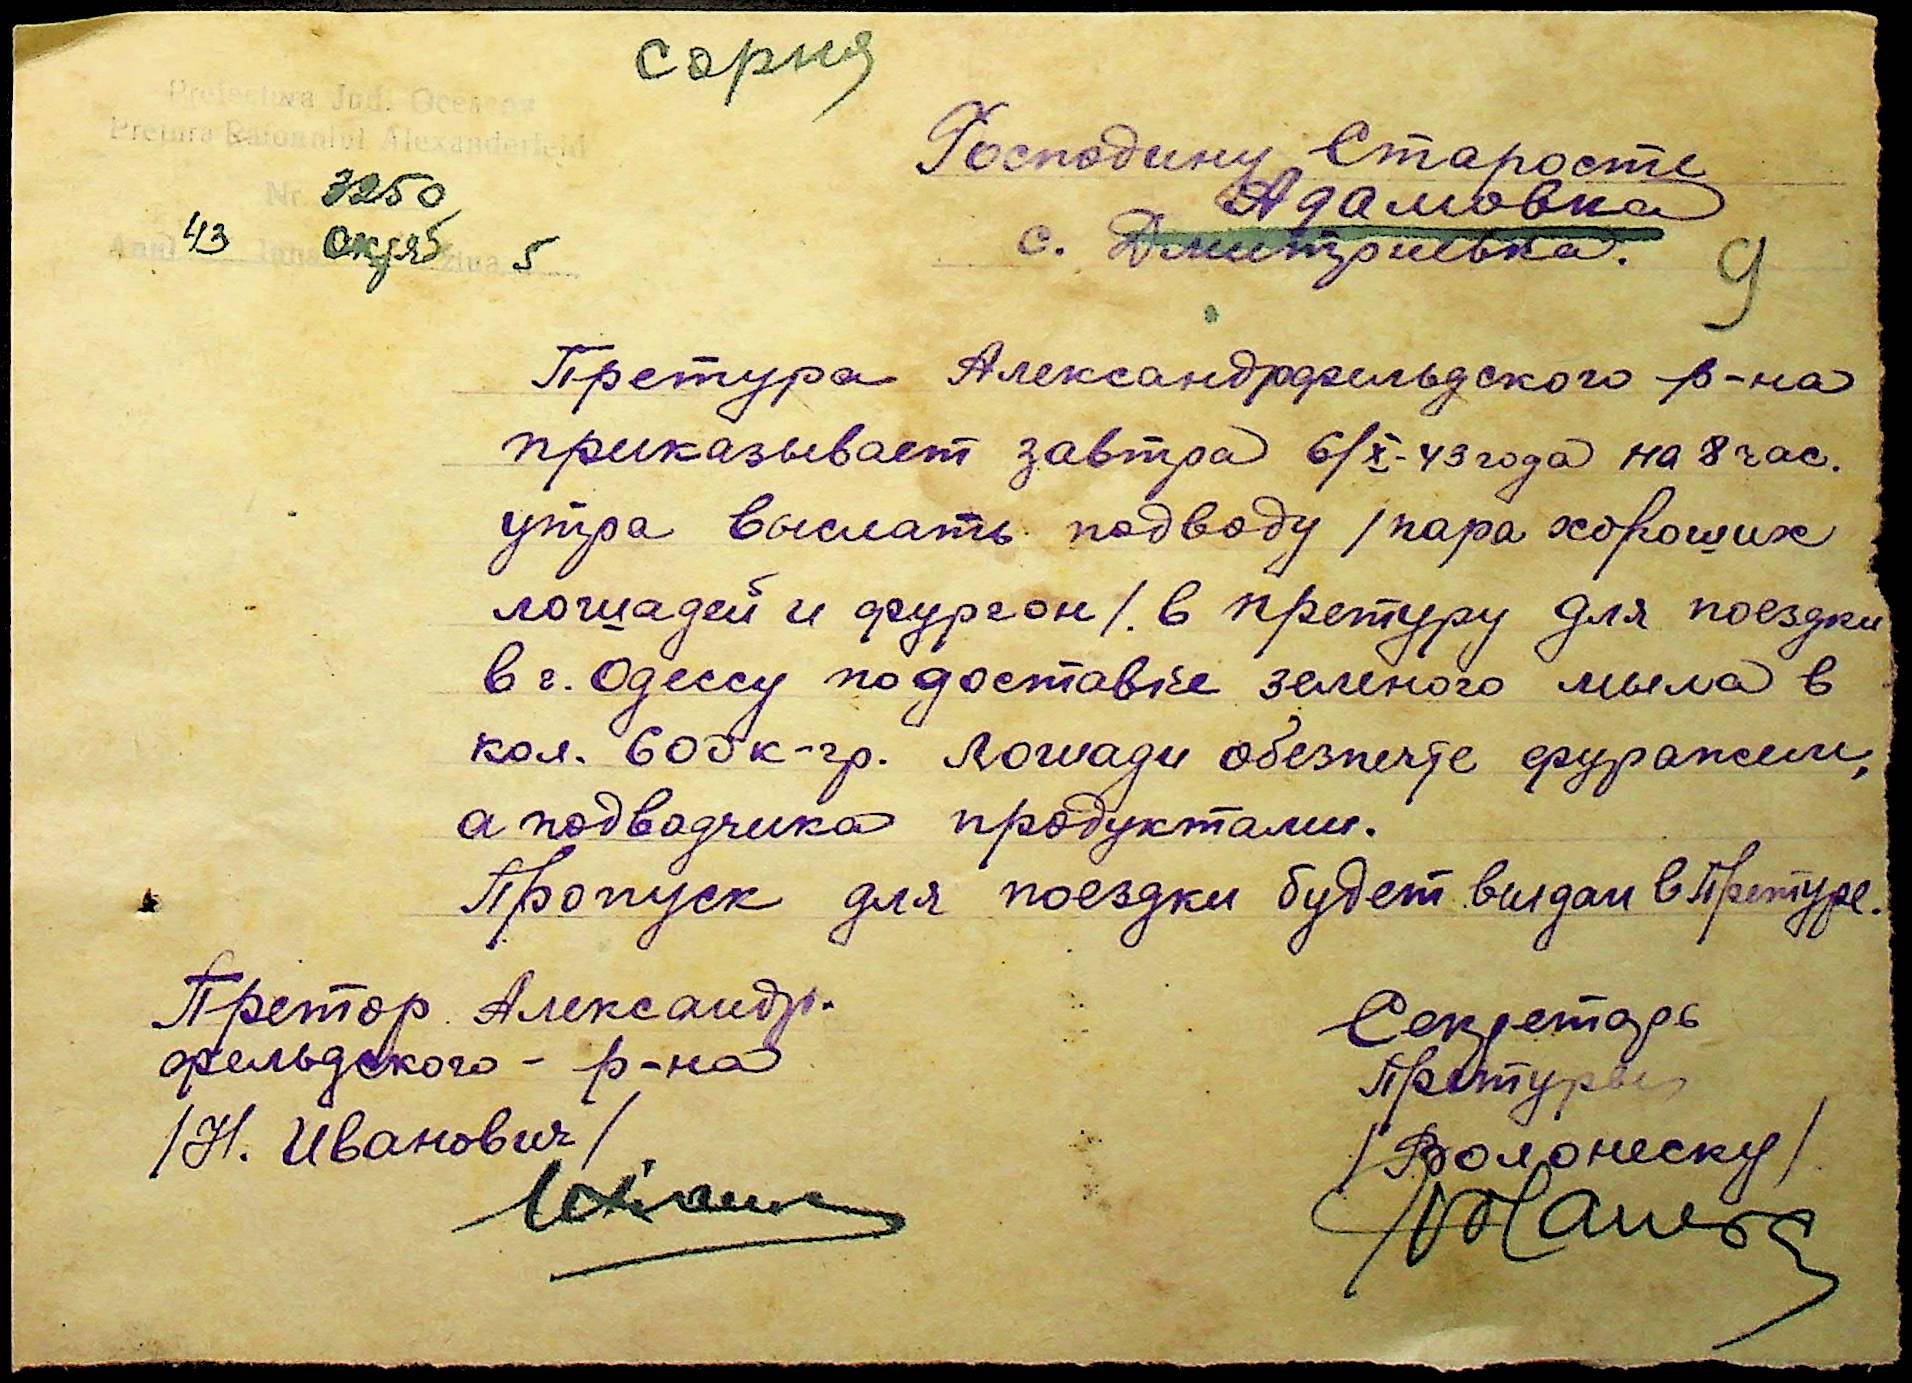 Prefectura Jud. Oceacov
Pretura Raionului Alexanderfeld
Nr. 3250
Anul 43 Luna октяб Ziua 5
Господину Старосте
Адамовка
с. Дмитриевка.
9
Претура Александрфельдского р-на
приказывает завтра 6/X-43 года на 8 час.
утра выслать подводу /пара хороших
лошадей и фургон/. в претуру для поездки
в г. Одессу по доставке зеленого мыла в
кол. 600 к-гр. Лошади обезпечте фуражем,
а подводчика продуктами.
Пропуск для поездки будет выдан в Претуре.
Претор Александр.
фельдского - р-на
/Н. Иванович/
Секретарь
Претуры
/Волонеску/